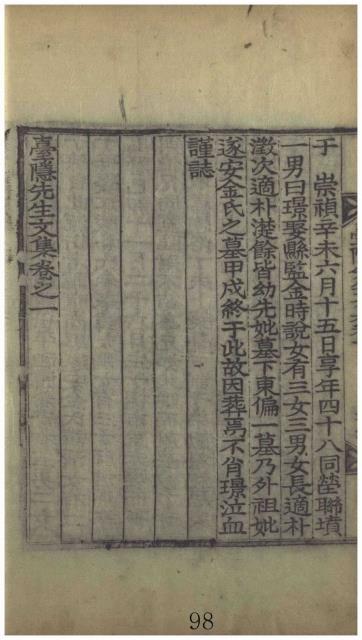 于　崇禎辛未六月十五日享年四十八同塋聯墳
一男曰璟娶縣監金時說女有三女三男女長適朴
澂次適朴濋餘皆幼先妣墓下東偏一墓乃外祖妣
遂安金氏之墓甲戌終于此故因葬焉不肖璟泣血
謹誌
臺隱先生文集卷之一
98